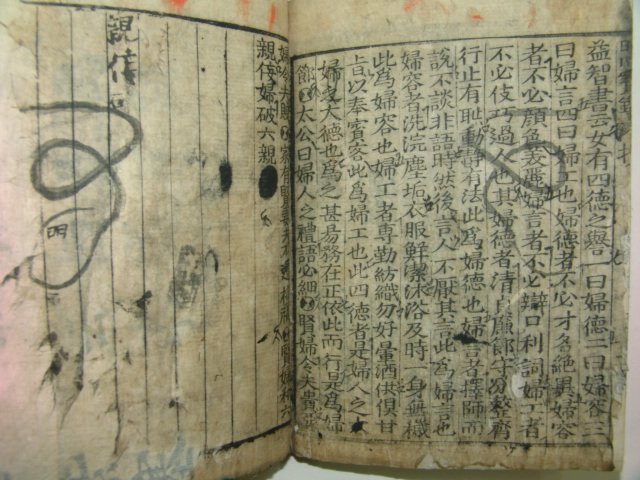 益智書云女有四德之譽一曰婦德二曰婦容三
曰婦言四曰婦工也婦德者不必才名絶異婦容
者不必顔色美麗婦言者不必辯口利詞婦工者
不必伎巧過人也其婦德者淸貞廉節守分整齊
行止有恥動靜有法此爲婦德也婦言者擇師而
說不談非語時然後言人不厭其言此爲婦言也
婦容者洗浣塵垢衣服鮮潔沐浴及時一身無穢
此爲婦容也婦工者専勤紡織勿好暈酒供俱甘
旨以奉賓客此爲婦工也此四德者是婦人之大
德也爲之甚易務在正依此而行是爲婦
節 太公曰婦人之禮語必細 賢婦令夫貴
婦令夫賤 家有賢妻夫不 賢婦和六
親侫婦破六親
親侫